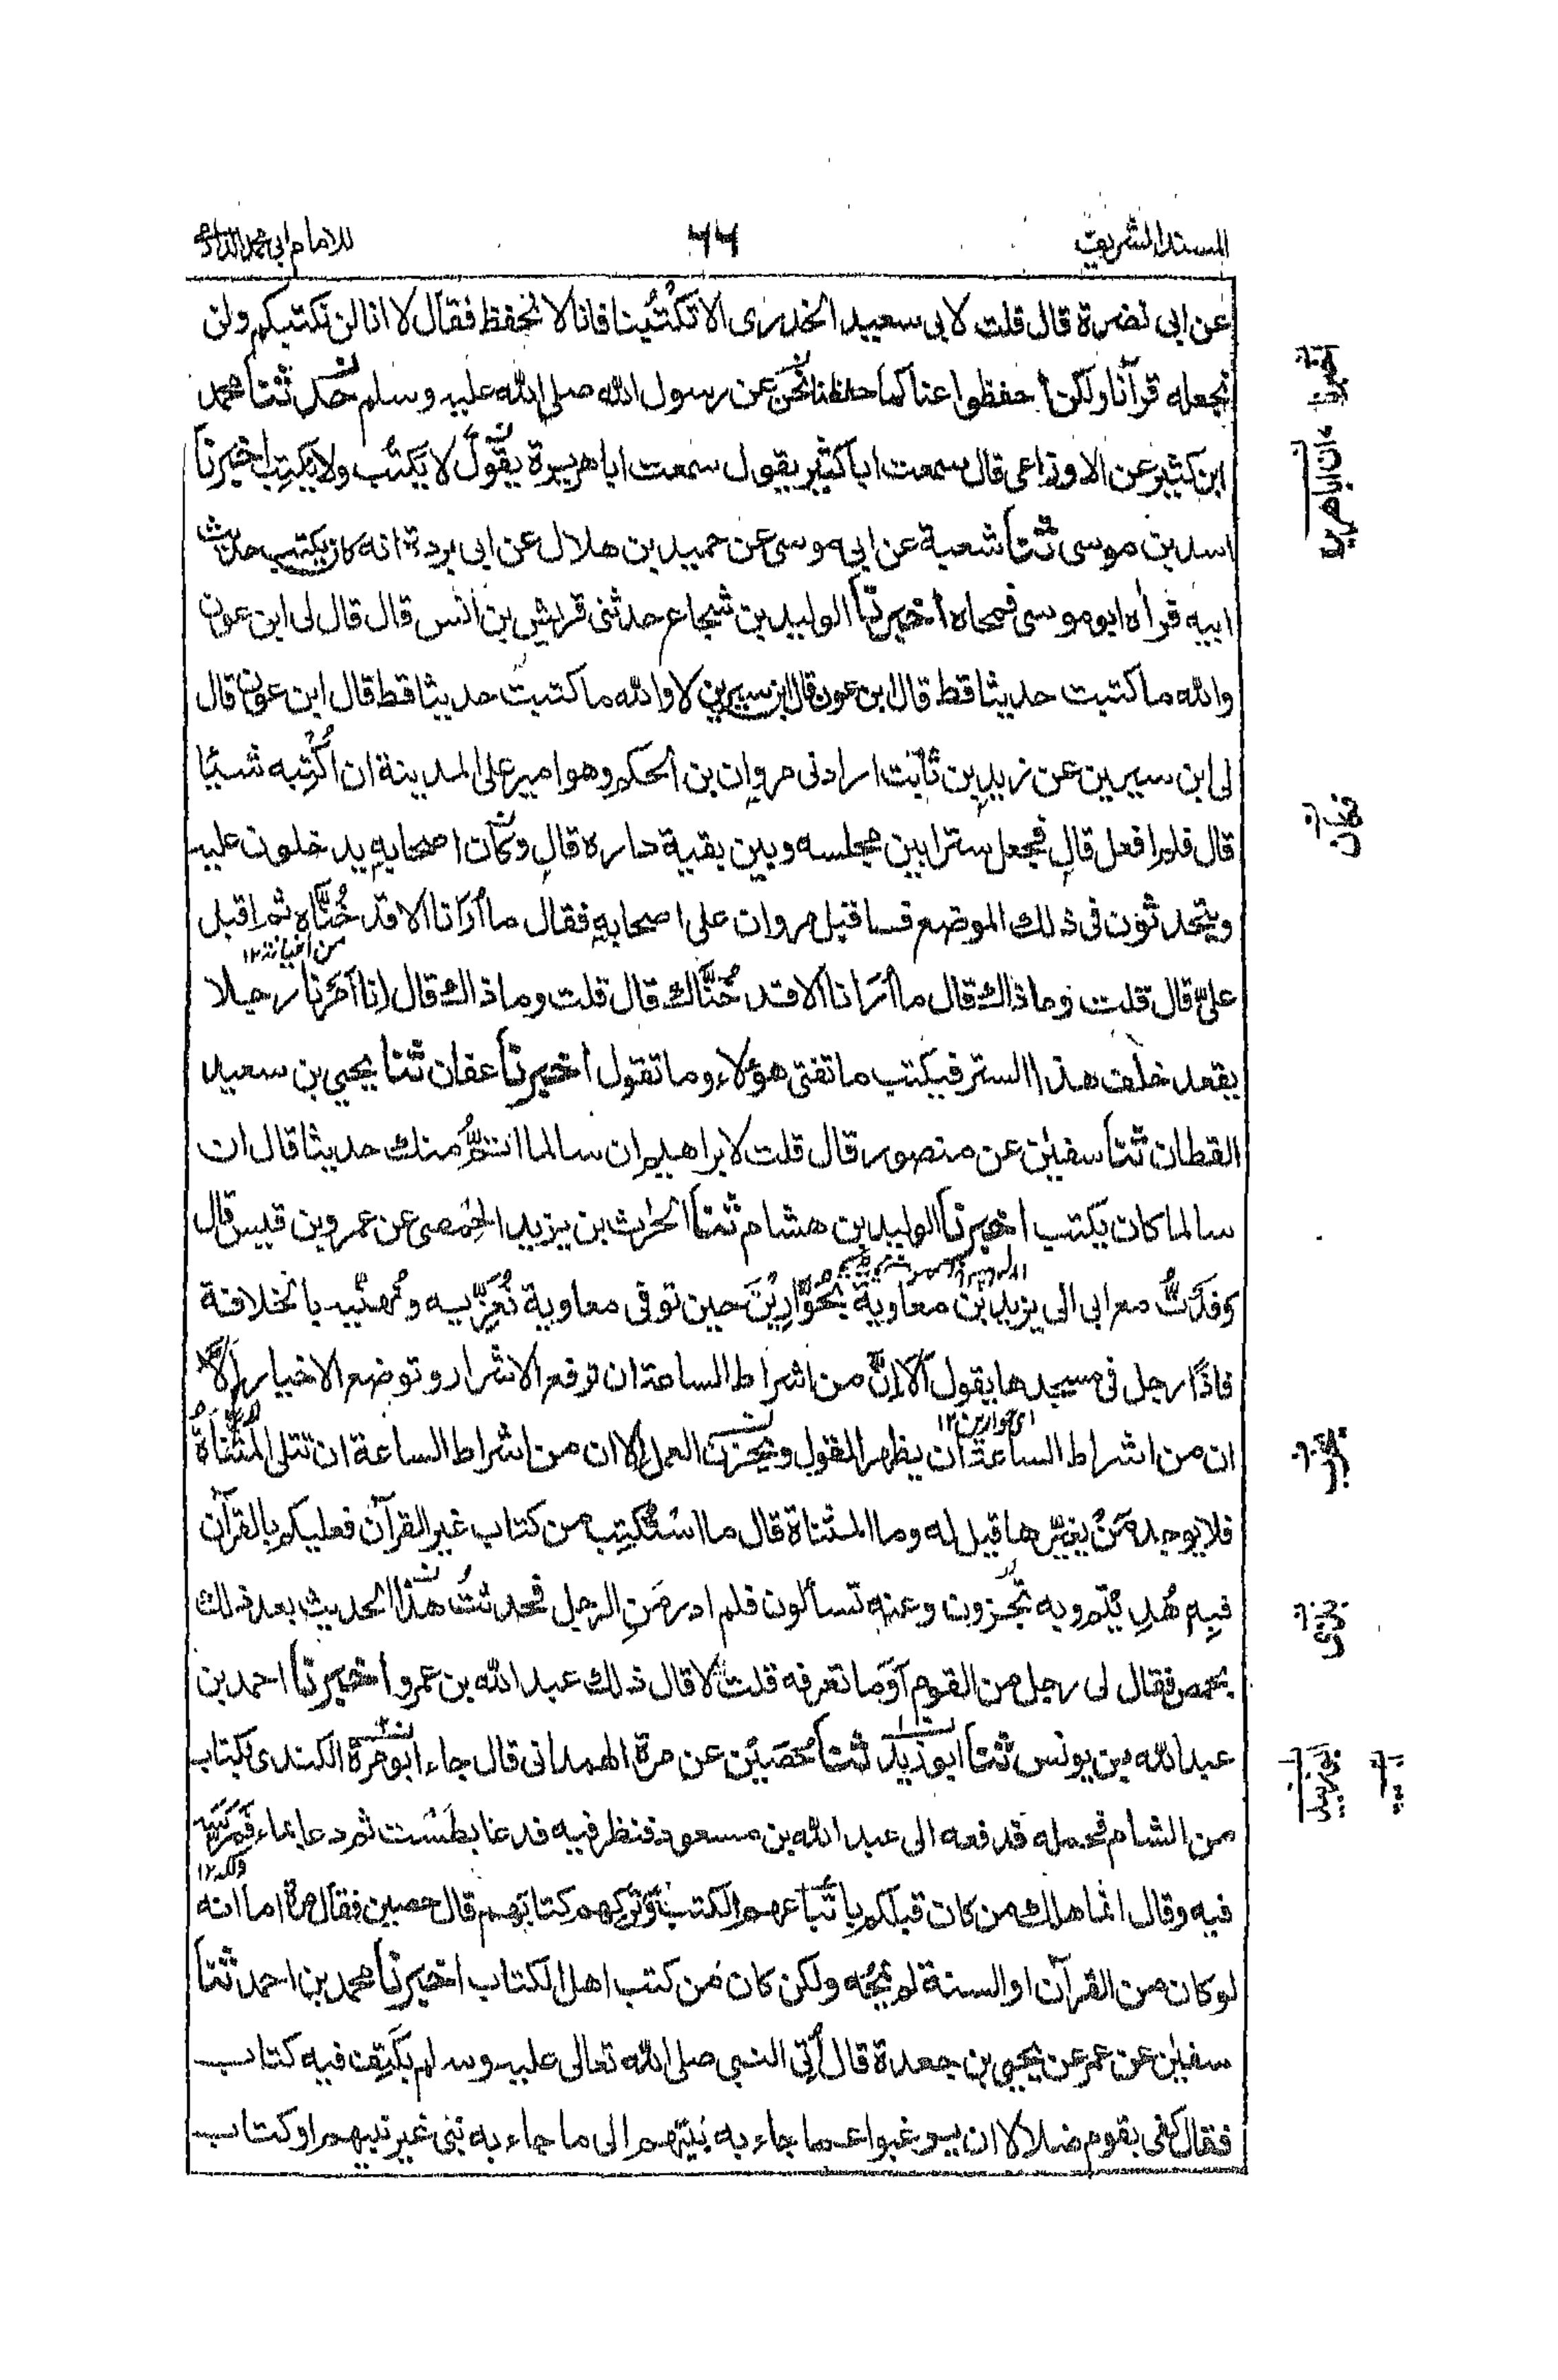 المسند الشريف
٦٦
للامام ابى محمد الدارمى
عن ابى نضرة قال قلت لابى سعيد الخدرى الا تُكْتِبُنا فانا لا نحفظ فقال لا انا لن نكتبكم ولن
نجعله قرآنا ولكن احفظوا عنا كما حفظنا نحن عن رسول الله صلى الله عليه وسلم حدثنا محمد
ابن كثير عن الاوزاعى قال سمعت ابا كثير يقول سمعت ابا هريرة يقول لا يَكتُب ولا يُكتِب اخبرنا
اسد بن موسى ثنا شعبة عن ابى موسى عن حميد بن هلال عن ابى بردة انه كان يكتب حديث
ابيه فرأه ابو موسى فمحاه اخبرنا الوليد بن شجاع حدثنى قريش بن انس قال قال لى ابن عون
والله ما كتبت حديثا قط قال ابن عون قال ابن سيرين لا والله ما كتبت حديثا قط قال ابن عون قال
لى ابن سيرين عن زيد بن ثابت ارادنى مروان بن الحكم وهو امير على المدينة ان اُكْتِبه شيئا
قال فلم افعل قال فجعل سترا بين مجلسه وبين بقية داره قال وكان اصحابه يدخلون عليه
ويتحدثون فى ذلك الموضع فاقبل مروان على اصحابه فقال ما اُرَانا الا قد خُنَّاه ثم اقبل
من الخيانة ١٢
علىّ قال قلت وما ذاك قال ما اُرَانا الا قد خُنَّاك قال قلت وما ذاك قال اِنا اَمَرنا رجلا
يقعد خلف هذا الستر فيكتب ما تفتى هؤلاء وما تقول اخبرنا عفان ثنا يحيى بن سعيد
القطان ثنا سفين عن منصور قال قلت لابراهيم ان سالما اتمُّ منك حديثا قال ان
سالما كان يكتب اخبرنا الوليد بن هشام ثنا الحرث بن يزيد الحِمصى عن عمرو بن قيس قال
وَفَدْتُ مع ابى الى يزيد بن معاوية بحُوَّارِيْنَ حين توفى معاوية نُعَزِّيه ونُهنّيه بالخلافة
فاذا رجل فى مسجدها يقول اَلَا اِنَّ من اشراط الساعة ان ترفع الاشرار وتوضع الاخيار اَلَا
اى حوارين ١٢
ان من اشراط الساعة ان يظهر القول ويخزن العمل الا ان من اشراط الساعة ان تتلى المَثناةُ
فلا يوجد مَنْ يغيّرها قيل له وما المثناة قال ما اسُتُكتِب من كتاب غير القرآن فعليكم بالقرآن
فبِه هُدِيتم وبه تجزون وعنه تسألون فلم ادر مَنِ الرجل فحدثتُ هذا الحديث بعد ذلك
بحمص فقال لى رجل من القوم اَوَما تعرفه قلت لا قال ذلك عبد الله بن عمرو اخبرنا احمد بن
عبد الله بن يونس ثنا ابو زبيد ثنا حُصَيْن عن مرة الهمدانى قال جاء ابو مرة الكندى بكتاب
من الشام فحمله فدفعه الى عبد الله بن مسعود فنظر فيه فدعا بطَسْت ثم دعا بماء فمَرَسَه
دلكه ١٢
فيه وقال انما هلك من كان قبلكم باتباعهم الكتب وتركهم كتابهم قال حصين فقال مرة اما انه
لو كان من القرآن او السنة لم يَمْحُه ولكن كان من كتب اهل الكتاب اخبرنا محمد بن احمد ثنا
سفين عن عمر عن يحيى بن جعدة قال اُتِى النبى صلى الله تعالى عليه وسلم بكَتِف فيه كتاب
فقال كفى بقوم ضلالا ان يرغبوا عما جاء به نبيّهم الى ما جاء به نبى غير نبيهم او كتاب
ان ابا هريرة
فكان
ابو زبيد